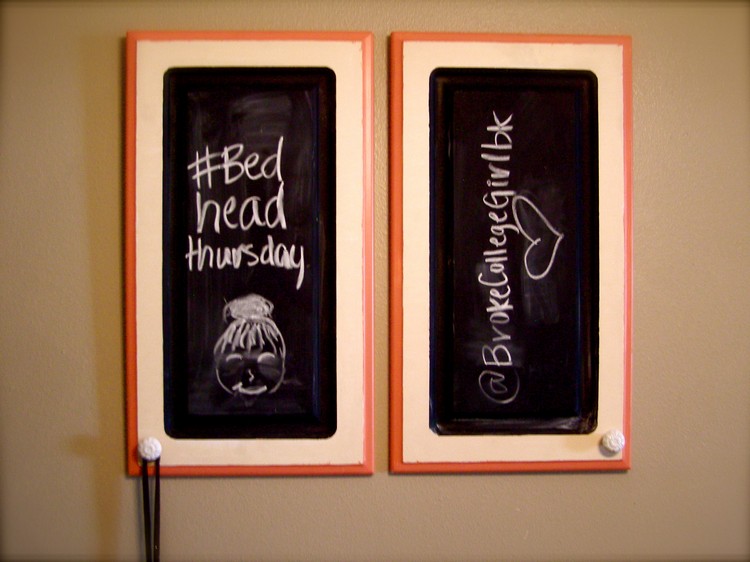 #Bed
head
thursday
@BrokeCollegeGirlbk